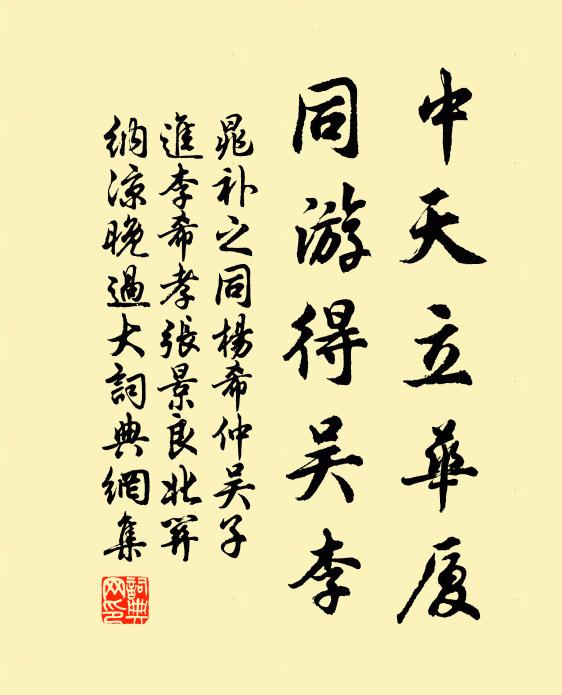 中天立華厦
同游得吴李
晁补之同楊希仲吴子
進李希孝張景良北
納凉晚過大詞典網集
詞典
网